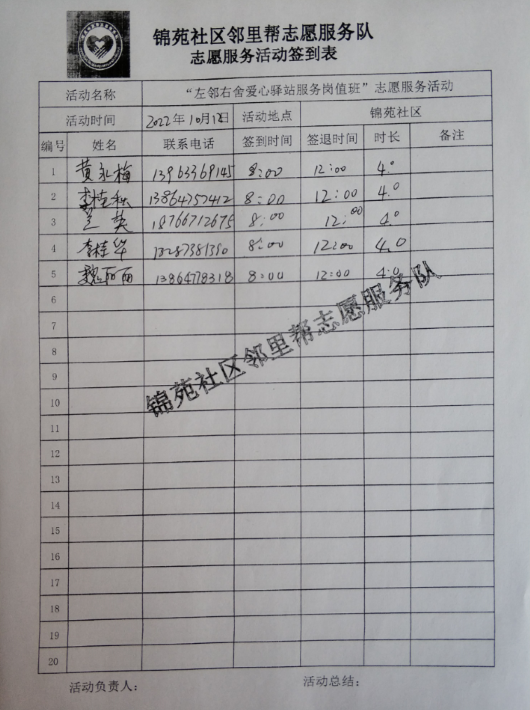 锦苑社区邻里帮志愿服务队
志愿服务活动签到表
活动名称 “左邻右舍爱心驿站服务岗值班”志愿服务活动
活动时间 2022年10月12日 活动地点 锦苑社区
编号 姓名 联系电话 签到时间 签退时间 时长 备注
1 黄永梅 13963369145 8:00 12:00 4.0
2 李桂秋 13864757412 8:00 12:00 4.0
3 兰英 18766712675 8:00 12:00 4.0
4 李桂华 8:00 12:00 4.0
5 魏丽丽 13864778318 8:00 12:00 4.0
6
7
8
9
锦苑社区邻里帮志愿服务队
10
11
12
13
14
15
16
17
18
19
20
活动负责人： 活动总结：